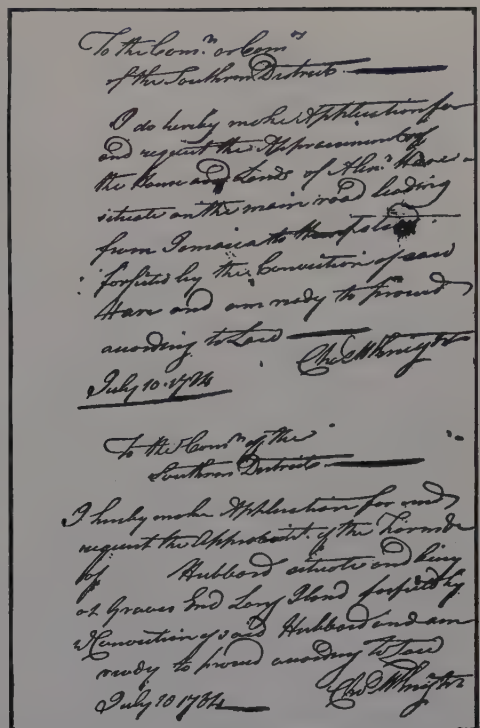 To the Com.rs or Com
of the Southern District
I do hereby make Application for
and request the Appraisement of
the House and Lands of Alex.r Hare
situate on the main road leading
from Jamaica to
forfeited by the Conviction of said
Hare and am ready to proceed
according to Law
Cha.s McKnight
July 10. 1784
To the Com.rs of the
Southern District
I hereby make Application for and
request the Appraisemt. of the Lands
of Hubbard situate and being
at Graves End Long Island forfeited by
Conviction of said Hubbard and am
ready to proceed according to Law
Cha.s McKnight
July 10 1784